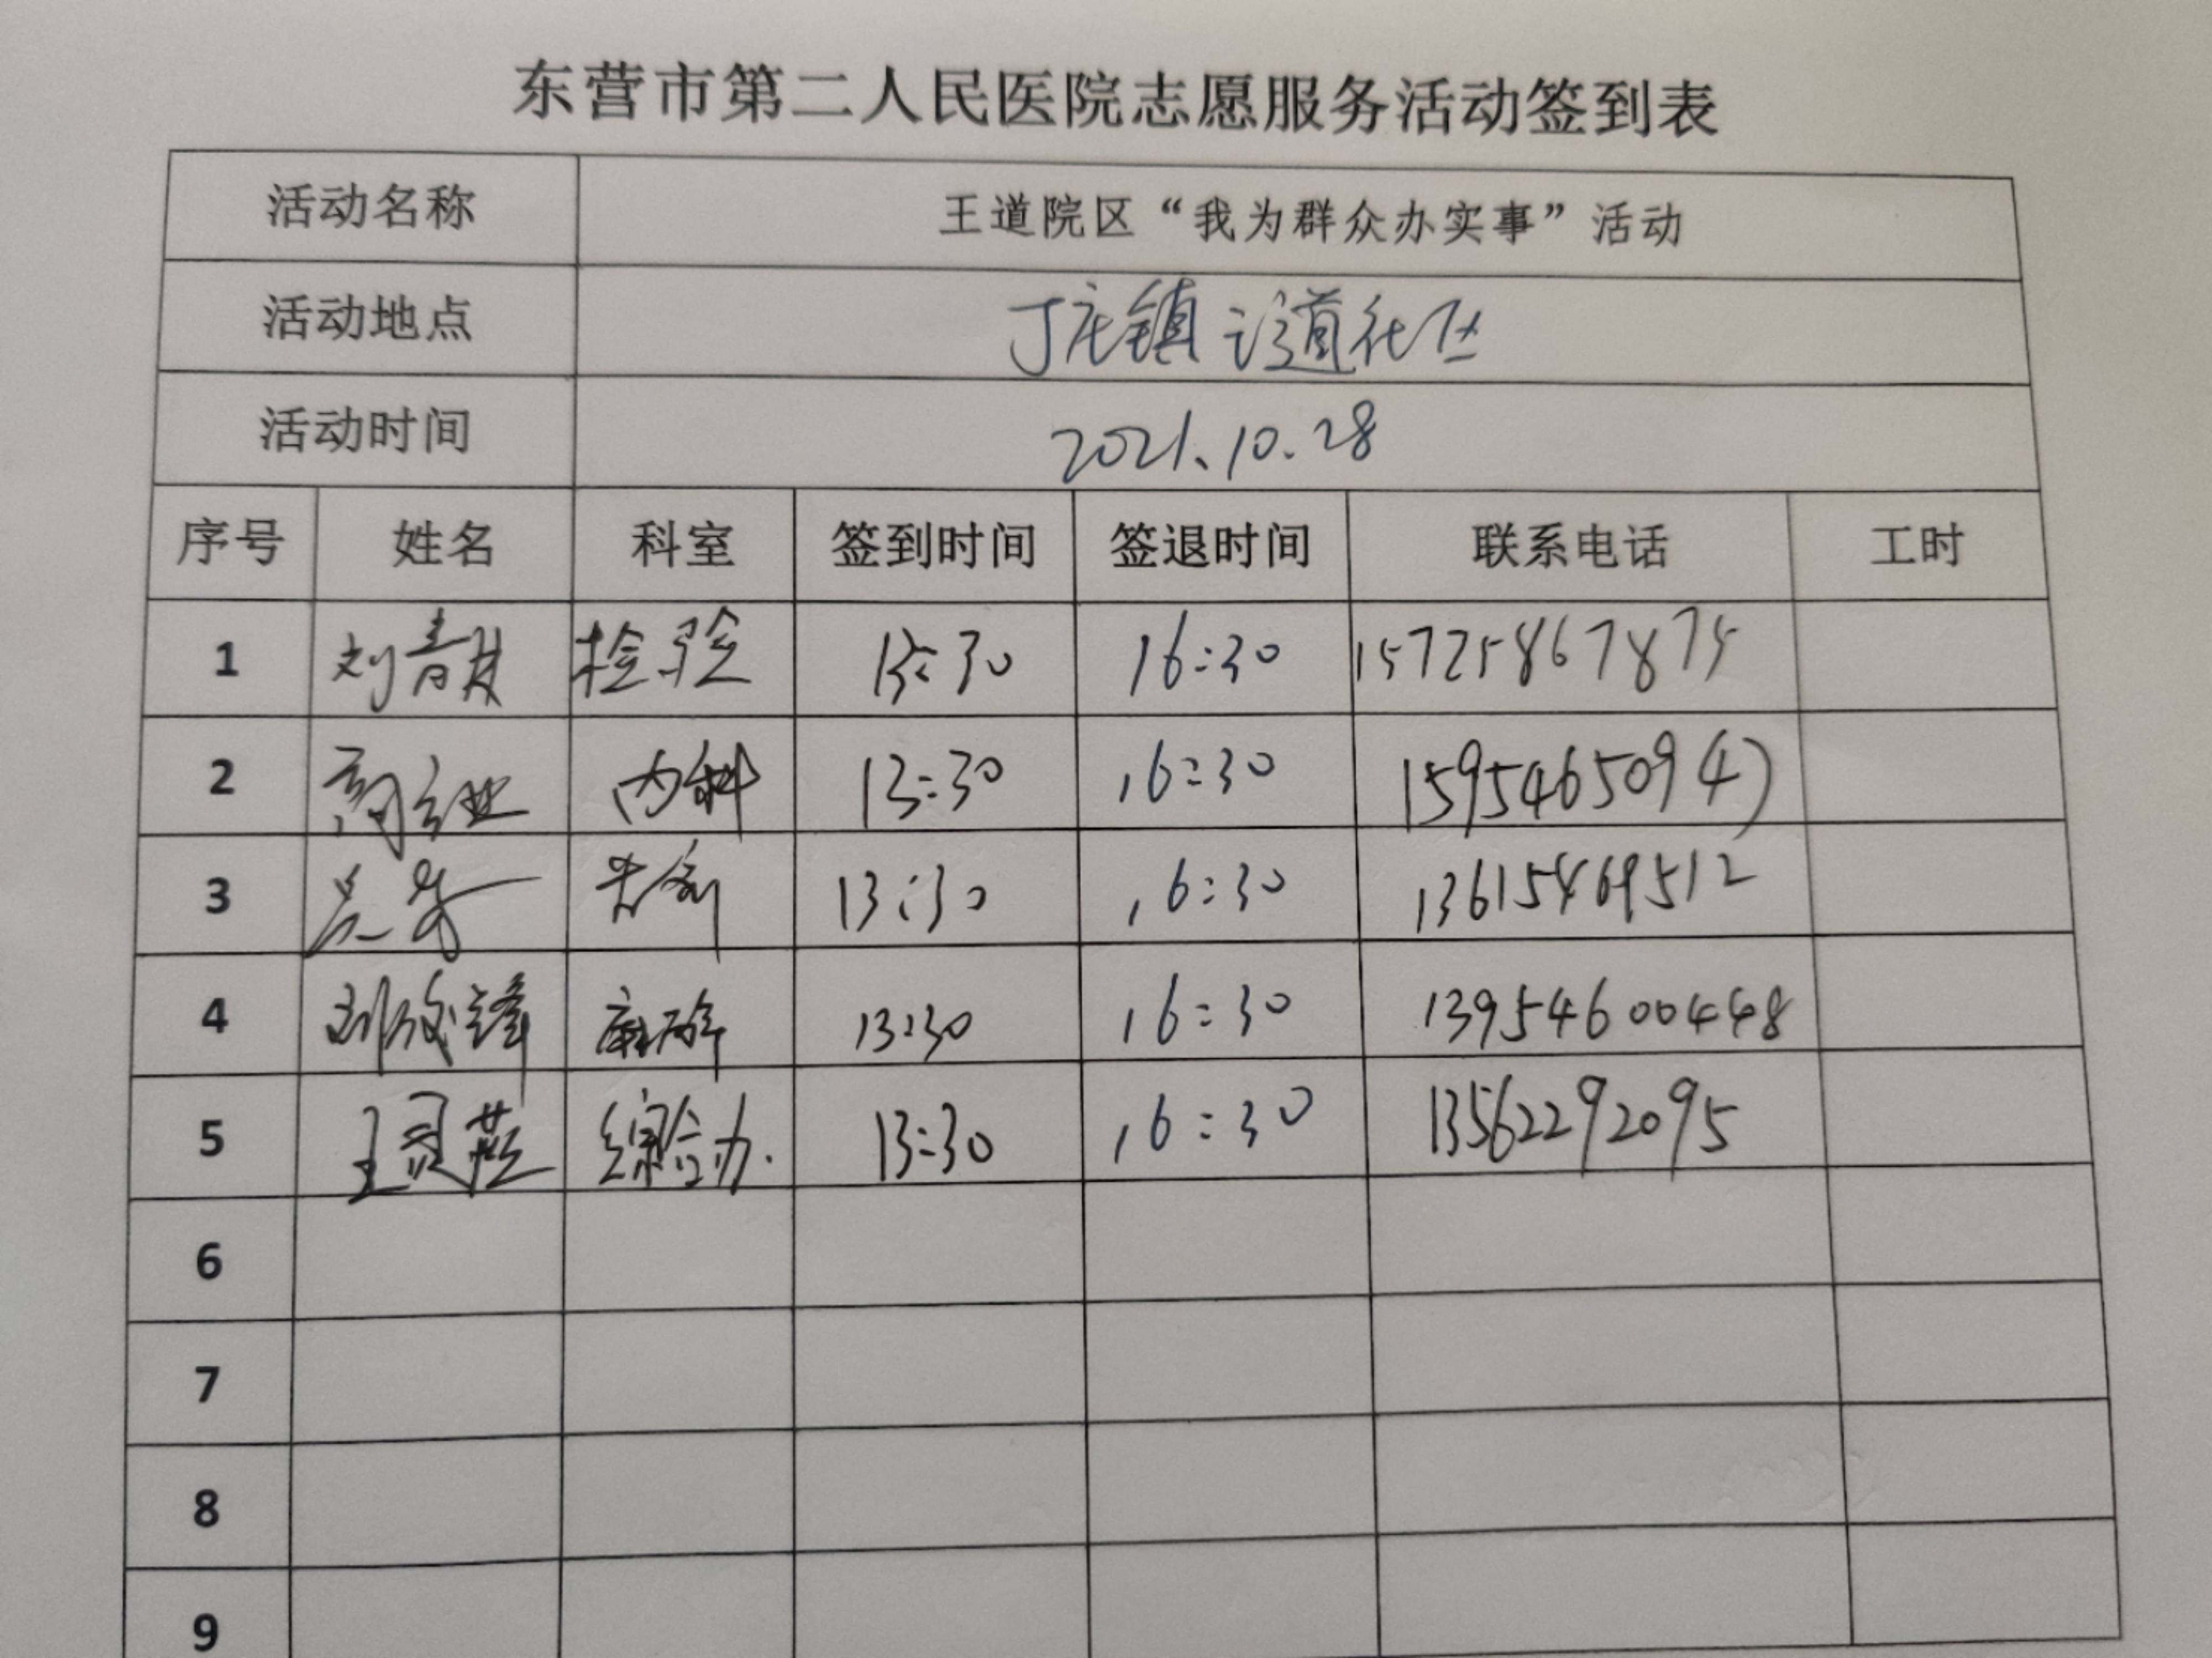 东营市第二人民医院志愿服务活动签到表
活动名称 王道院区“我为群众办实事”活动
活动地点 丁庄镇 道社区
活动时间 2021.10.28
序号 姓名 科室 签到时间 签退时间 联系电话 工时
1 刘青 检验 13:30 16:30 15725867875
2 内科 13:30 16:30 15954650947
3 13:30 16:30 13615469512
4 刘 锋 13:30 16:30 13954600448
5 王灵燕 综合办. 13:30 16:30 13562292095
6
7
8
9